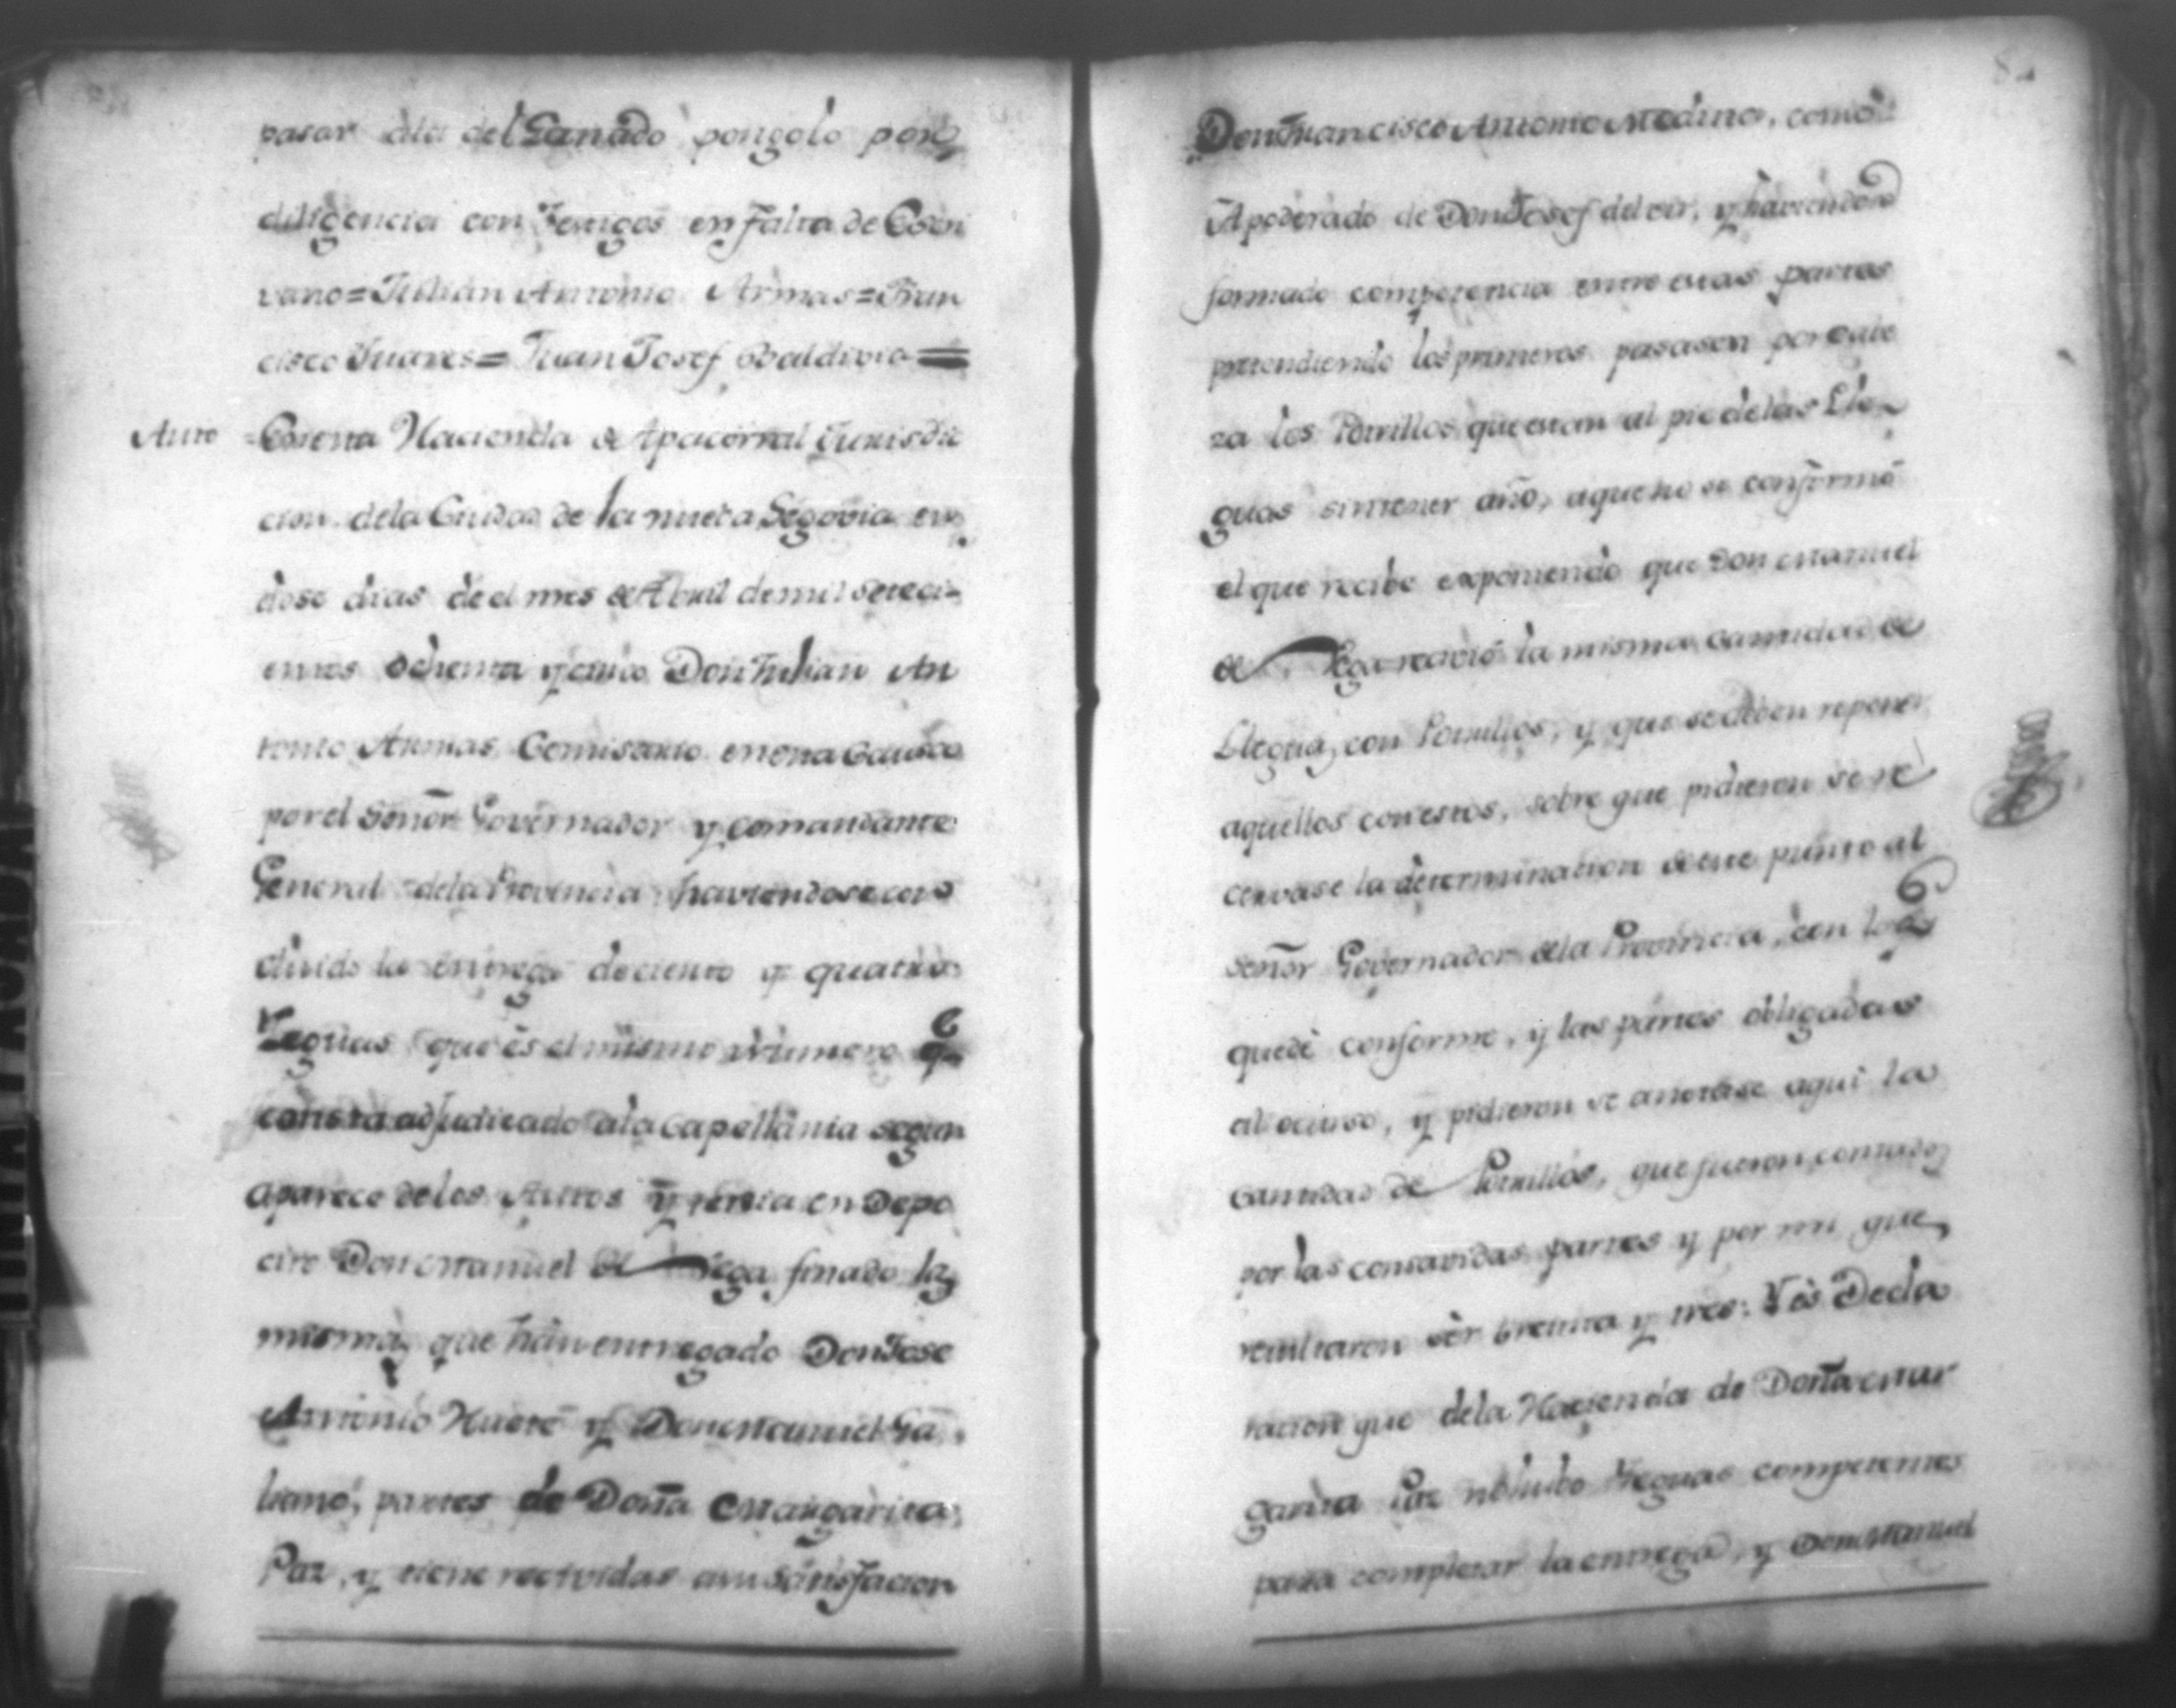 pasar àla del Ganado pongolo por
diligencia con Testigos en falta de Escri
vano = Julian Antonio Armas = Fran
cisco Juares = Juan Josef Baldivia =
Auto = En esta Hacienda de Apacorral Jurisdic
cion dela Ciudad de la nueva Segovia en
dose dias de el mes de Abril de mil seteci-
entos ochenta y cinco Don Julian An
tonio Armas Comisario en esta Causa
por el Señor Governador y Comandante
General dela Provincia haviendose con
cluido la entrega de ciento y quatro
Yeguas que es el mismo numero qe
consta adjudicado àla Capellania segun
aparece delos Autos y tenia en Depo
cito Don Manuel de Vega finado las
mismas que han entregado Don Jose
Antonio Huete y Don Manuel Ga
liano, partes de Doña Margarita
Paz, y tiene recividas a su satisfacion
82
Don Francisco Antonio Medina, como
Apoderado de Don Josef del vir, y haviendose
formado competencia entre estas partes
pretendiendo los primeros pasasen por cave
za los Potrillos que estan al pie delas Lle-
guas sin tener año, aque no se conformó
el que recibe exponiendo que Don Manuel
de Vega recivió la misma cantidad de
Lleguas con Potrillos, y que se deben reponer
aquellos con estos, sobre que pidieron se re
cervase la determinacion de este punto al
Señor Governador dela Provincia, con lo qe
quedè conforme, y las partes obligadas
al ocurso, y pidieron se anotase aqui la
cantidad de Potrillos, que fueron contados
por las consavidas partes y por mi que
resultaron sèr treinta y tres: Y es Decla
racion que dela Hacienda de Doña Mar
garita Paz no hubo Yeguas competentes
para completar la entrega, y Don Manuel